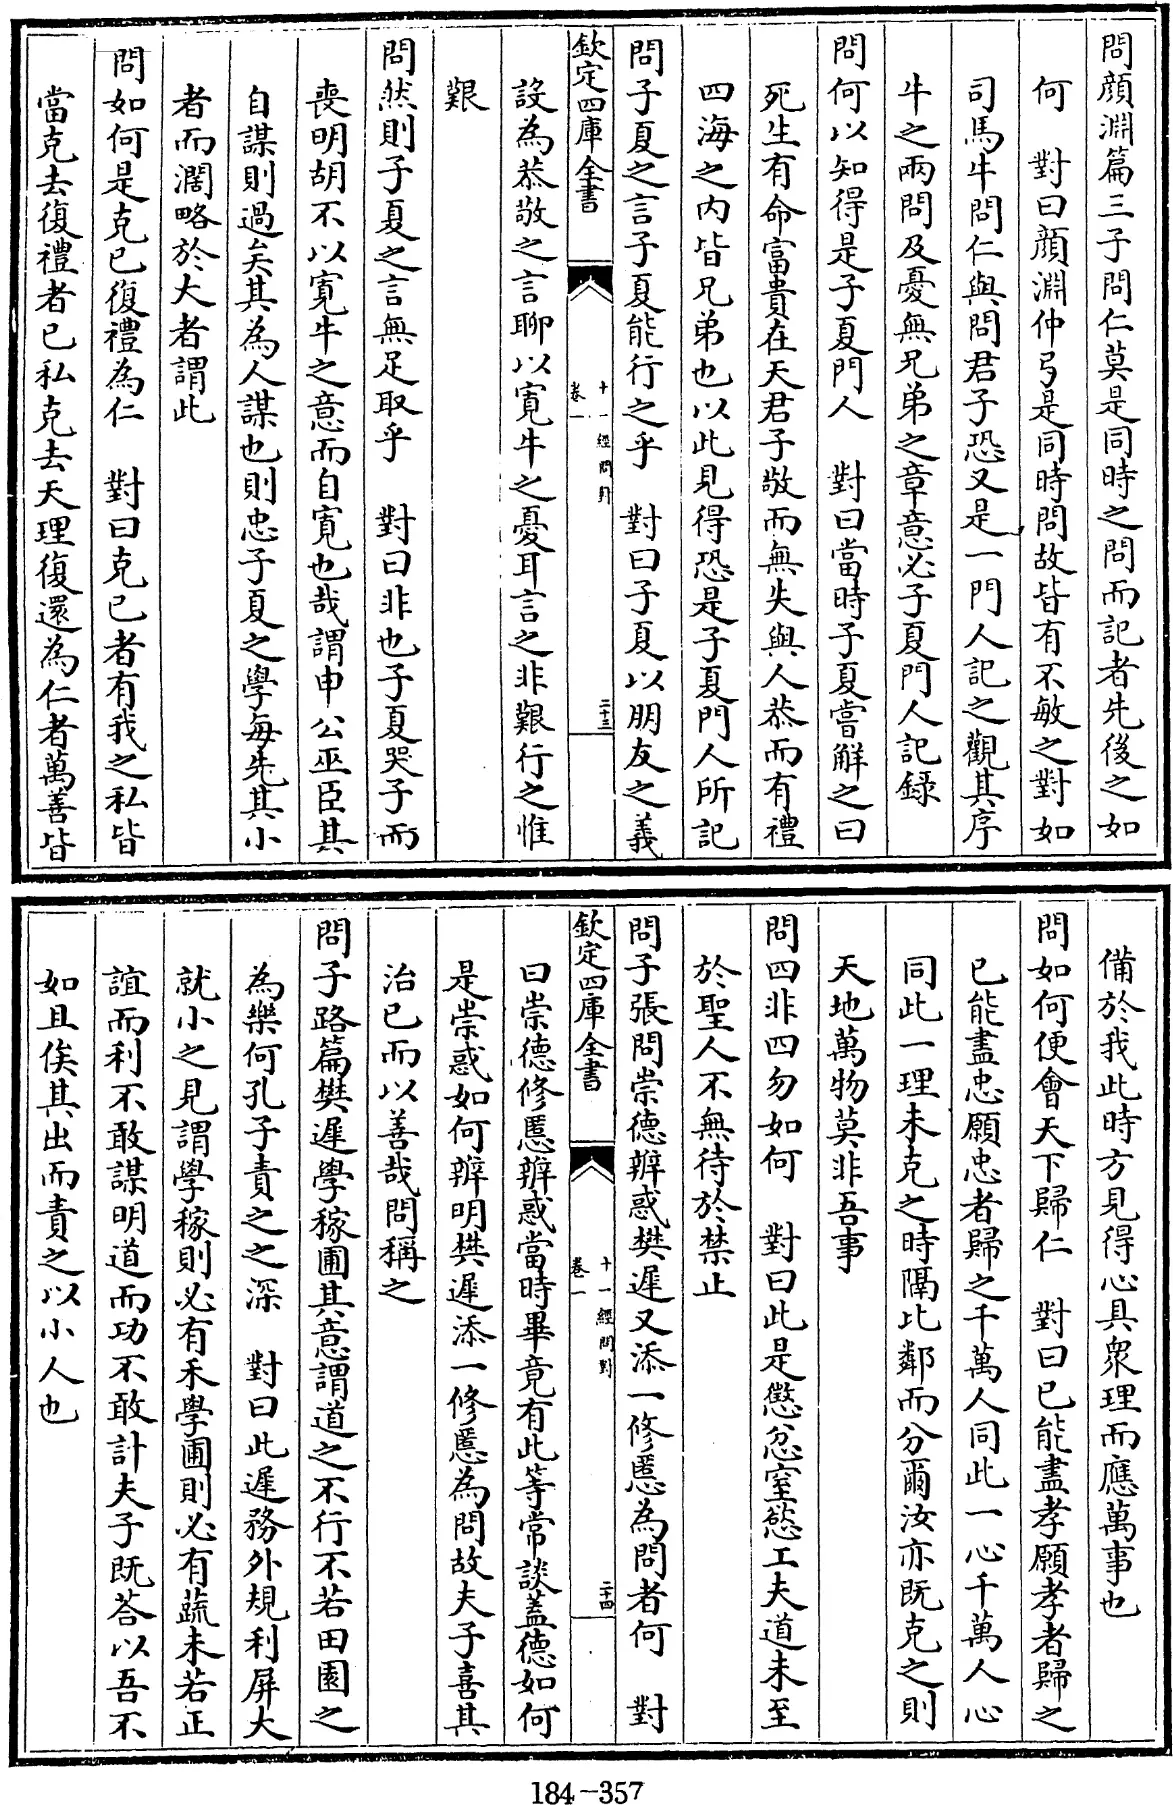 問顔淵篇三子問仁莫是同時之問而記者先後之如
何　對曰顔淵仲弓是同時問故皆有不敏之對如
司馬牛問仁與問君子恐又是一門人記之觀其序
牛之兩問及憂無兄弟之章意必子夏門人記録
問何以知得是子夏門人　對曰當時子夏嘗解之曰
死生有命富貴在天君子敬而無失與人恭而有禮
四海之内皆兄弟也以此見得恐是子夏門人所記
問子夏之言子夏能行之乎　對曰子夏以朋友之義
欽定四庫全書
十一經問對
卷一
二十三
設為恭敬之言聊以寛牛之憂耳言之非艱行之惟
艱
問然則子夏之言無足取乎　對曰非也子夏哭子而
喪明胡不以寛牛之意而自寛也哉謂申公巫臣其
自謀則過矣其為人謀也則忠子夏之學每先其小
者而濶略於大者謂此
問如何是克已復禮為仁　對曰克已者有我之私皆
當克去復禮者已私克去天理復還為仁者萬善皆
備於我此時方見得心具衆理而應萬事也
問如何便會天下歸仁　對曰已能盡孝願孝者歸之
已能盡忠願忠者歸之千萬人同此一心千萬人心
同此一理未克之時隔比鄰而分爾汝亦既克之則
天地萬物莫非吾事
問四非四勿如何　對曰此是懲忿窒慾工夫道未至
於聖人不無待於禁止
問子張問崇德辨惑樊遲又添一修慝為問者何　對
欽定四庫全書
十一經問對
卷一
二十四
曰崇德修慝辨惑當時畢竟有此等常談蓋德如何
是崇惑如何辨明樊遲添一修慝為問故夫子喜其
治已而以善哉問稱之
問子路篇樊遲學稼圃其意謂道之不行不若田園之
為樂何孔子責之之深　對曰此遲務外規利屏大
就小之見謂學稼則必有禾學圃則必有蔬未若正
誼而利不敢謀明道而功不敢計夫子既荅以吾不
如且俟其出而責之以小人也
184-357